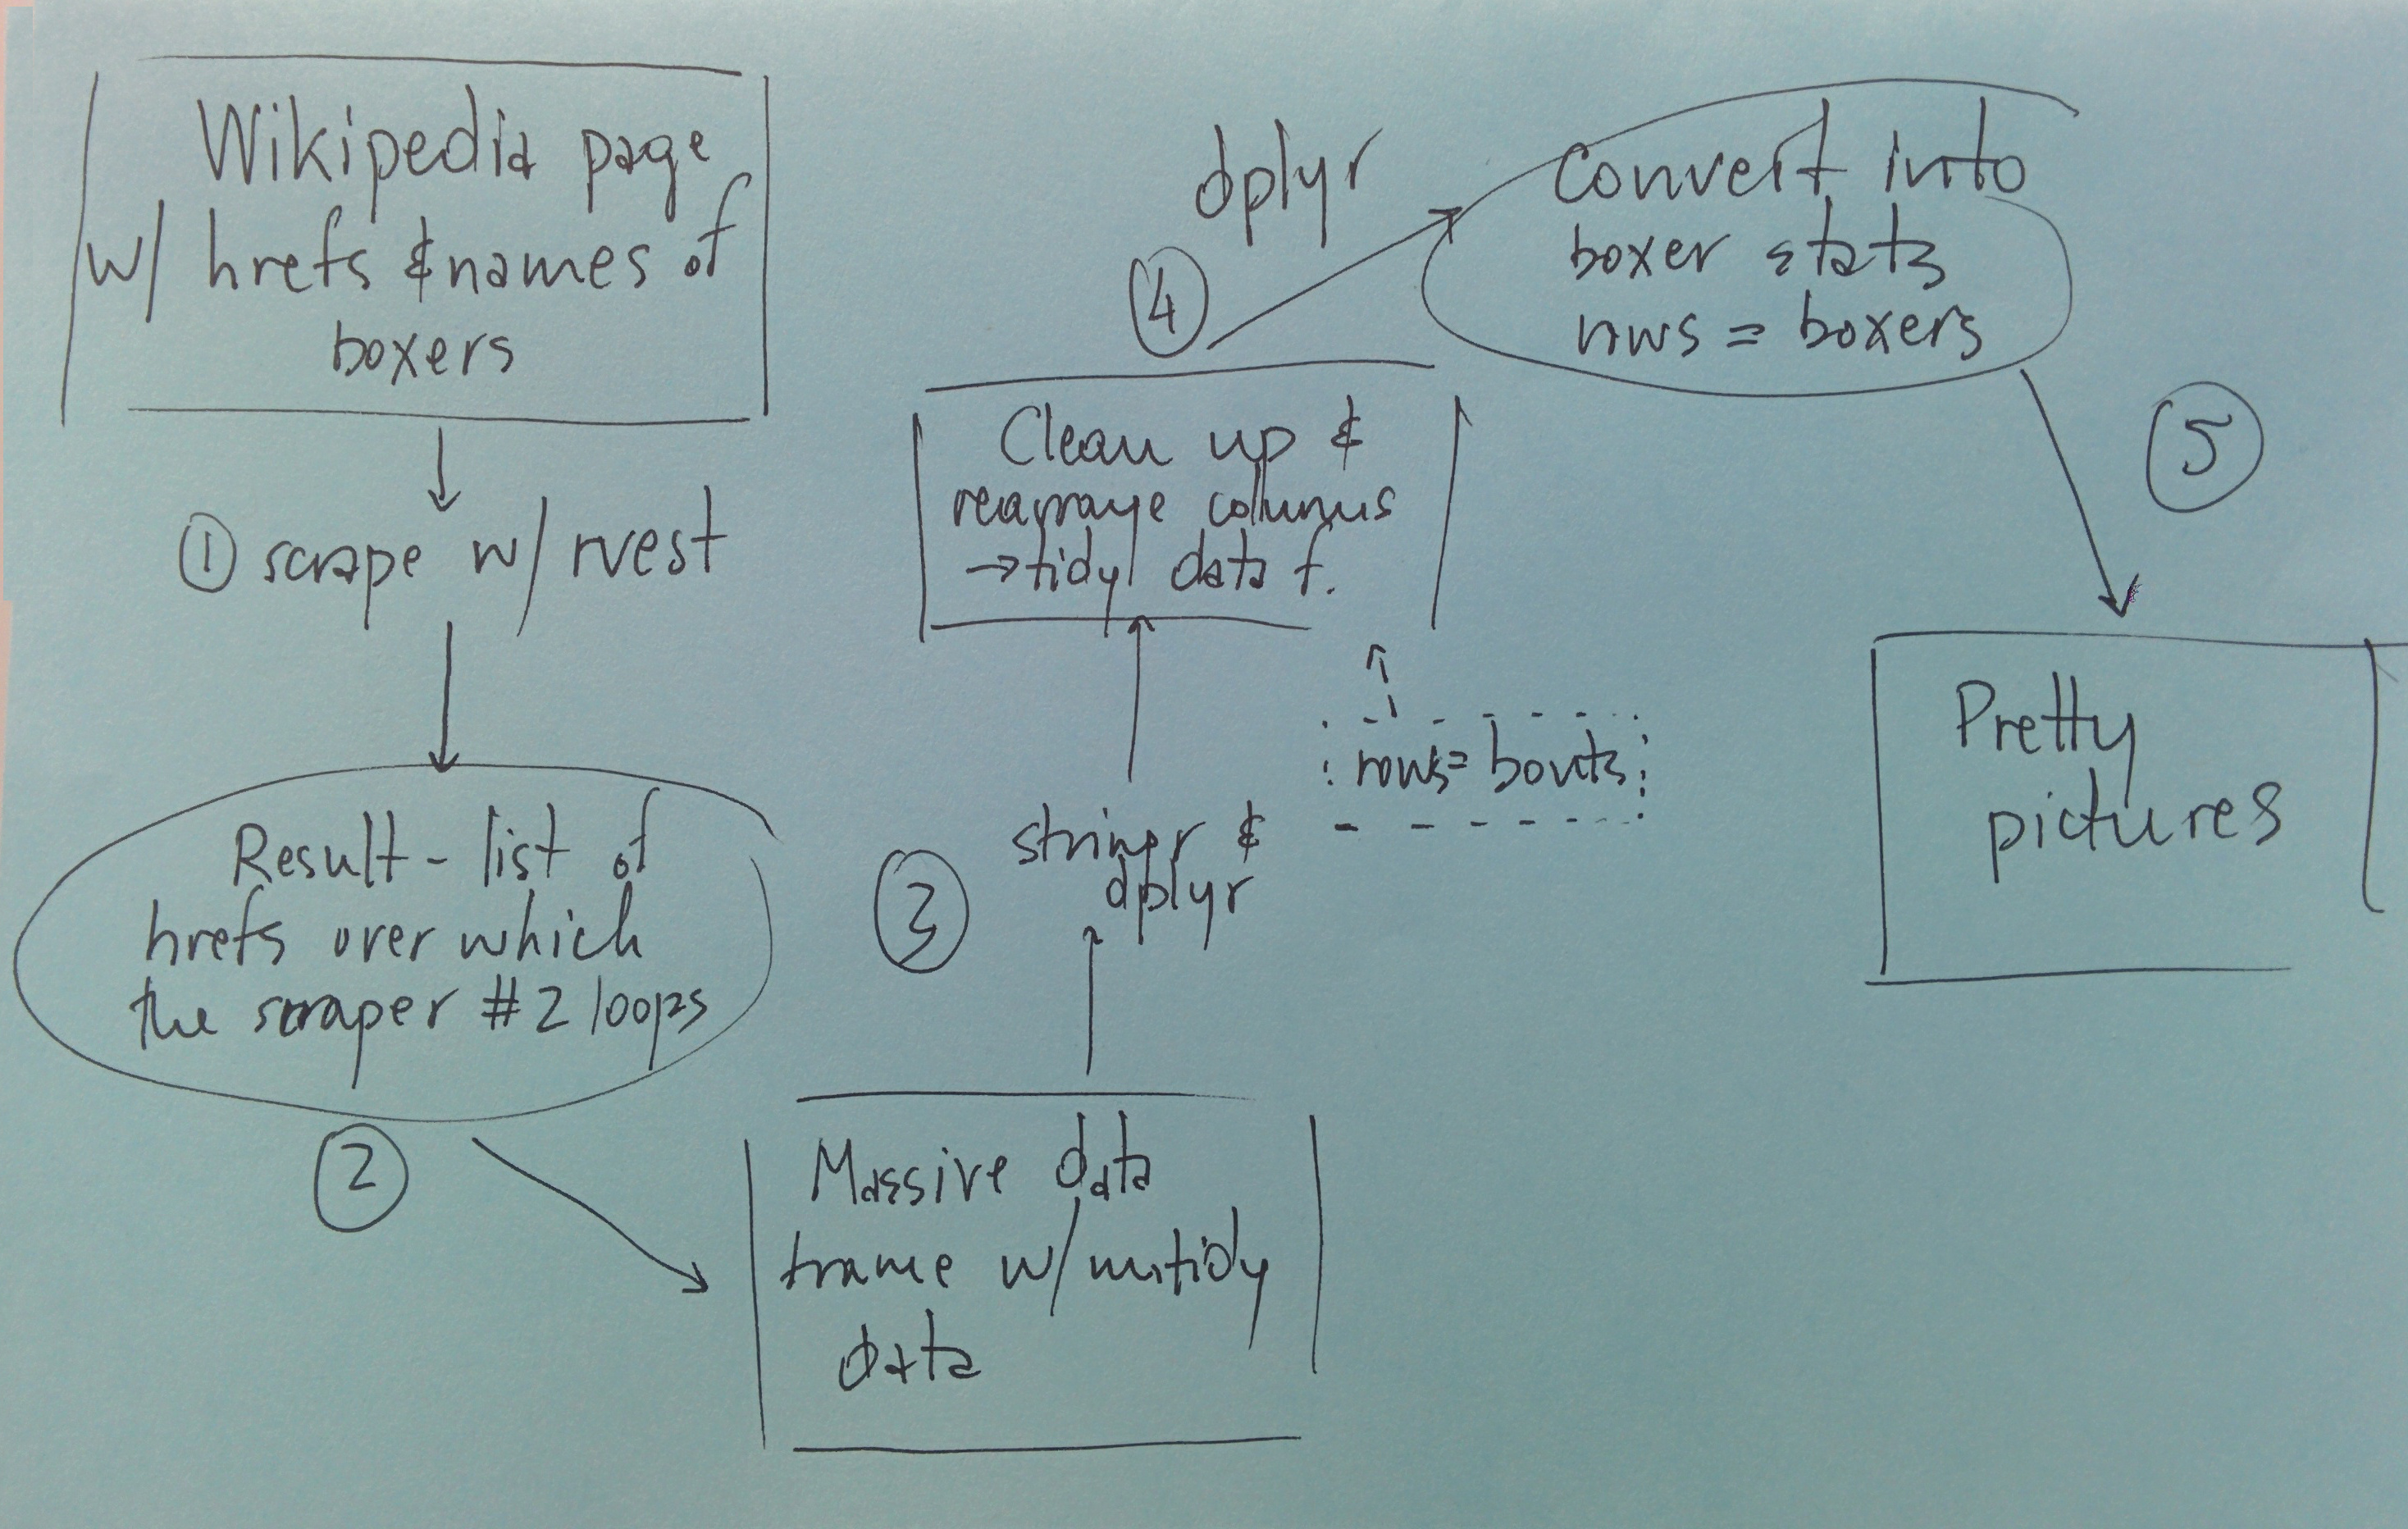 Wikipedia page
w/ hrefs & names of
boxers
① scrape w/ rvest
Result - list of
hrefs over which
the scraper #2 loops
②
Massive data
frame w/ untidy
data
③
stringr &
dplyr
rows = bouts
Clean up &
rearrange columns
→ tidy data f.
④
dplyr
Convert into
boxer stats
rows = boxers
⑤
Pretty
pictures